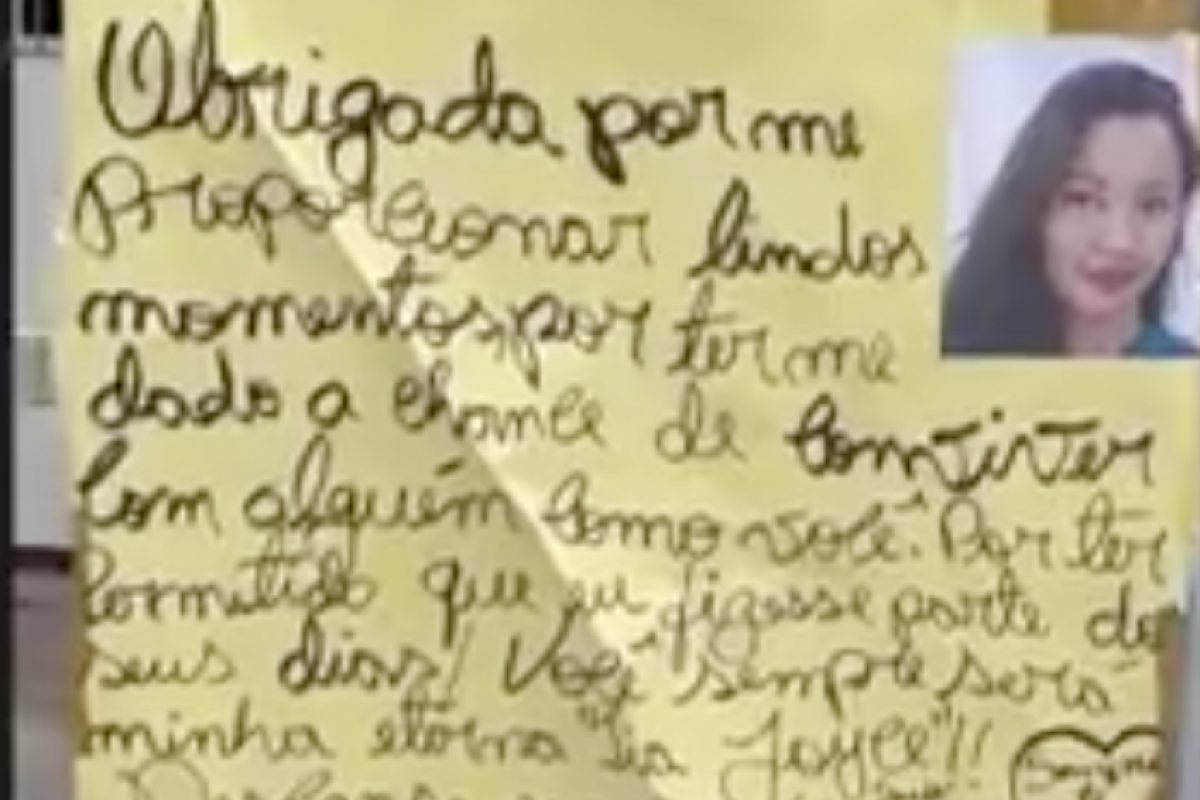 Obrigada por me
Proporcionar lindos
momentos, por ter me
dado a chance de Conviver
Com alguém Como você. Por ter
Permitido que eu fizesse parte de
seus dias! Você sempre será
minha eterna "Tia Joyce"!!